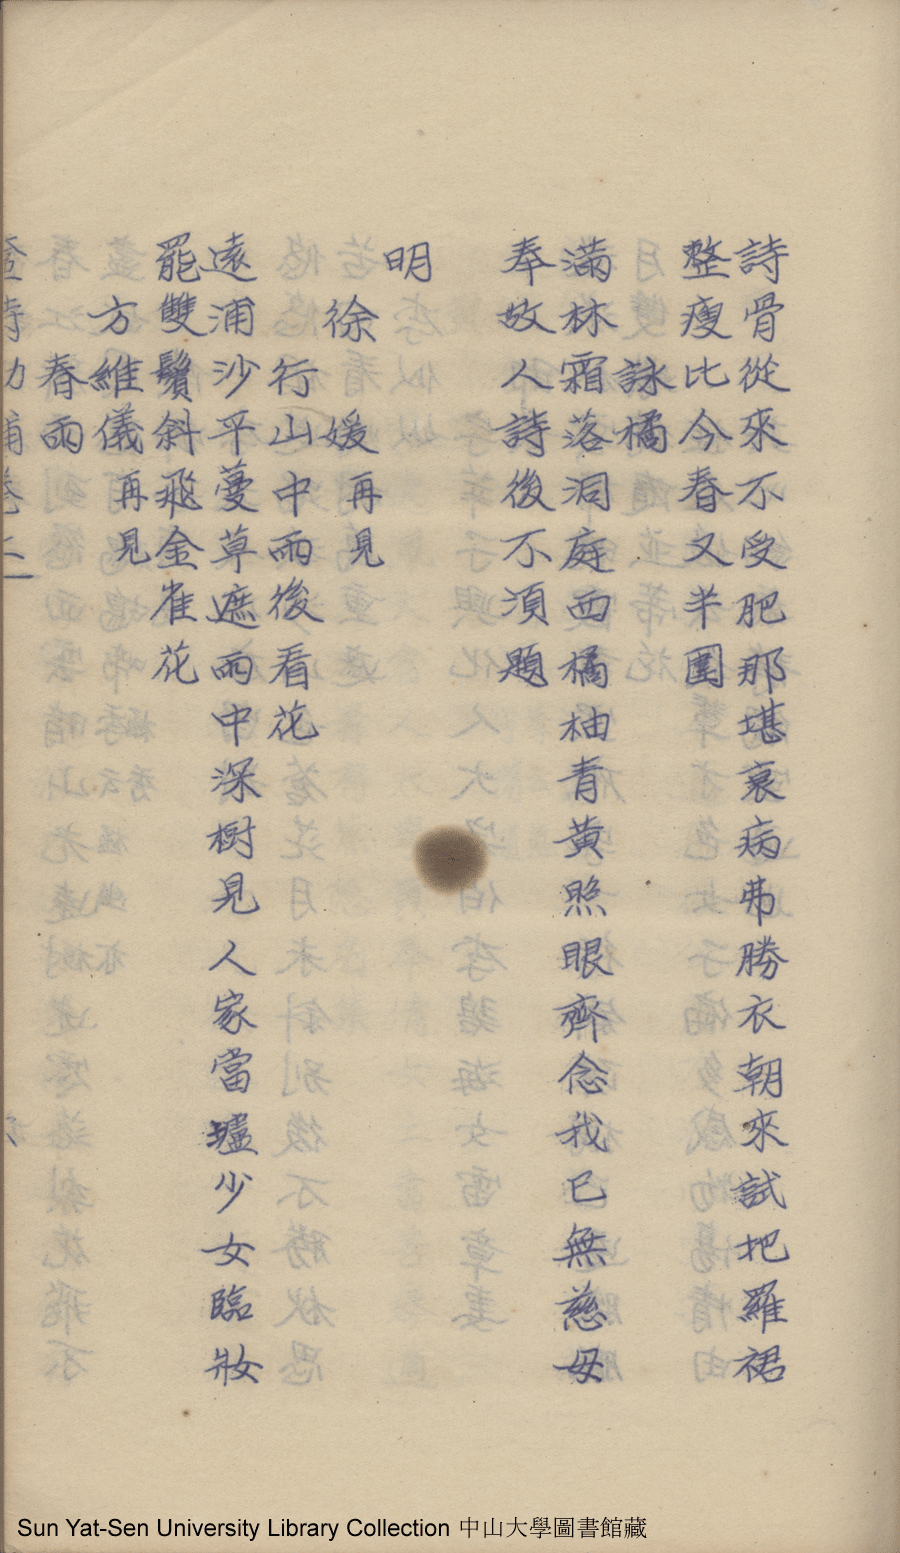 詩骨從來不受肥那堪衰病弗勝衣朝來試把羅裙
整瘦比今春又半圍
詠橘
滿林霜落洞庭西橘柚青黃照眼齊念我已無慈母
奉故人詩後不須題
明
徐媛再見
行山中雨後看花
遠浦沙平蔓草遮雨中深樹見人家當壚少女臨妝
罷雙鬢斜飛金雀花
方維儀再見
春雨
Sun Yat-Sen University Library Collection 中山大學圖書館藏